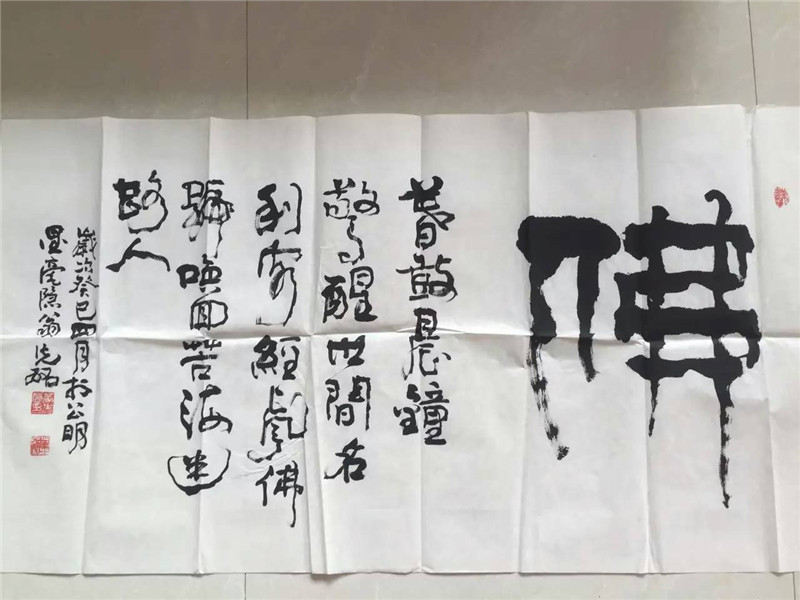 佛
暮鼓晨鐘
警醒世間名
利客經聲佛
號喚回苦海迷
路人
歲次癸巳四月於公明
墨毫隐翁